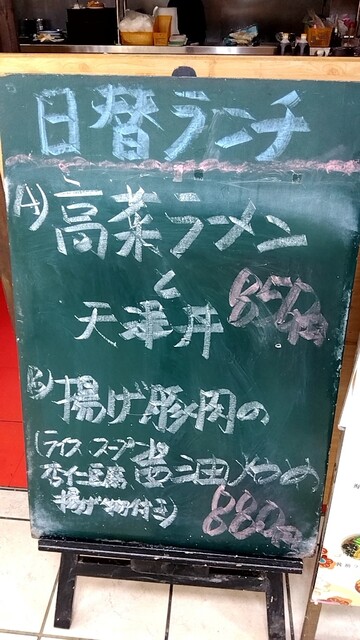 日替ランチ
A) 高菜ラーメン
と
天津丼 850円
B) 揚げ豚肉の
醤油炒め
(ライス スープ
杏仁豆腐
揚げ物付き)
880円